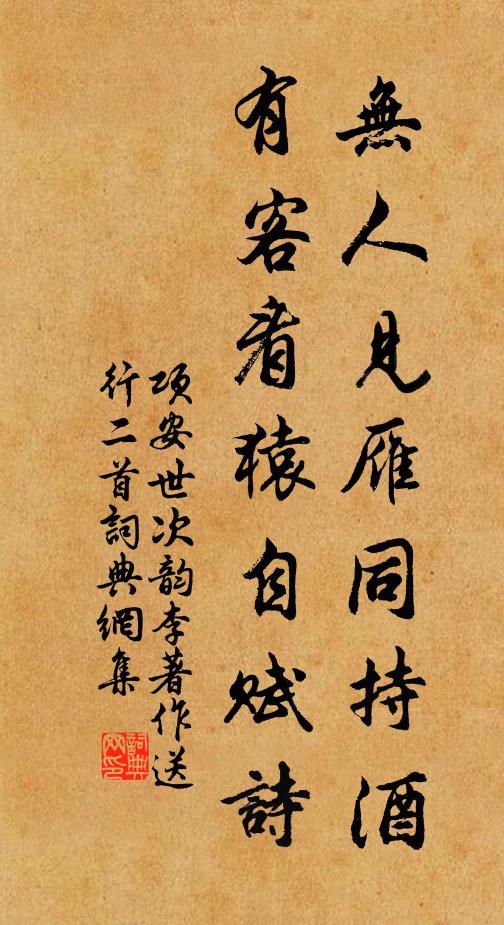 無人見雁同持酒
有客看猿自賦詩
項安世次韵李著作送
行二首詞典網集
詞典
网印